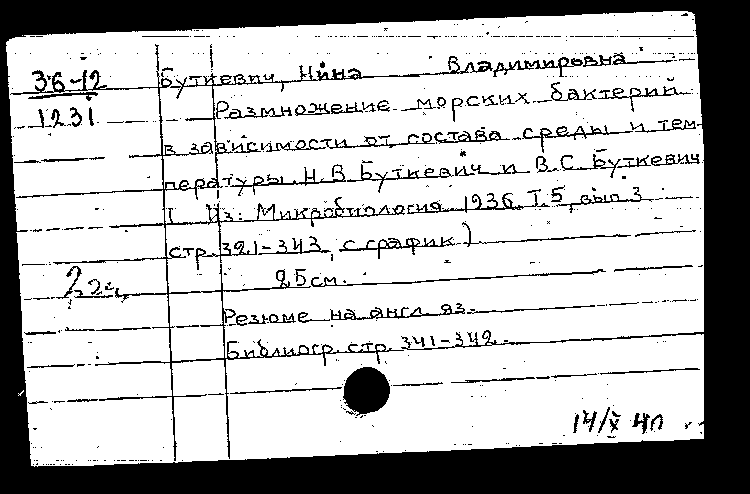 36-12
1231
Буткевич, Нина Владимировна
Размножение морских бактерий
в зависимости от состава среды и тем-
пературы. Н.В. Буткевич и В.С. Буткевич
Из: Микробиология 1936. Т.5, вып 3
стр. 321-343, с график.)
25 см.
Резюме на англ. яз.
Библиогр. стр. 341-342.
14/X 40